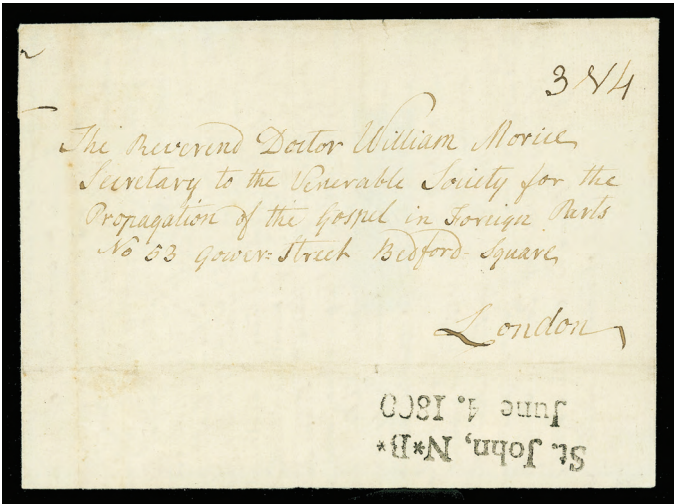 3 N 4
The Reverend Doctor William Morice
Secretary to the Venerable Society for the
Propagation of the Gospel in Foreign Parts
No 53 Gower=Street Bedford-Square
London
St. John, N*B*
June 4. 1800